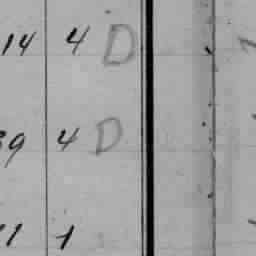 14 4 D
39 4 D
11 1